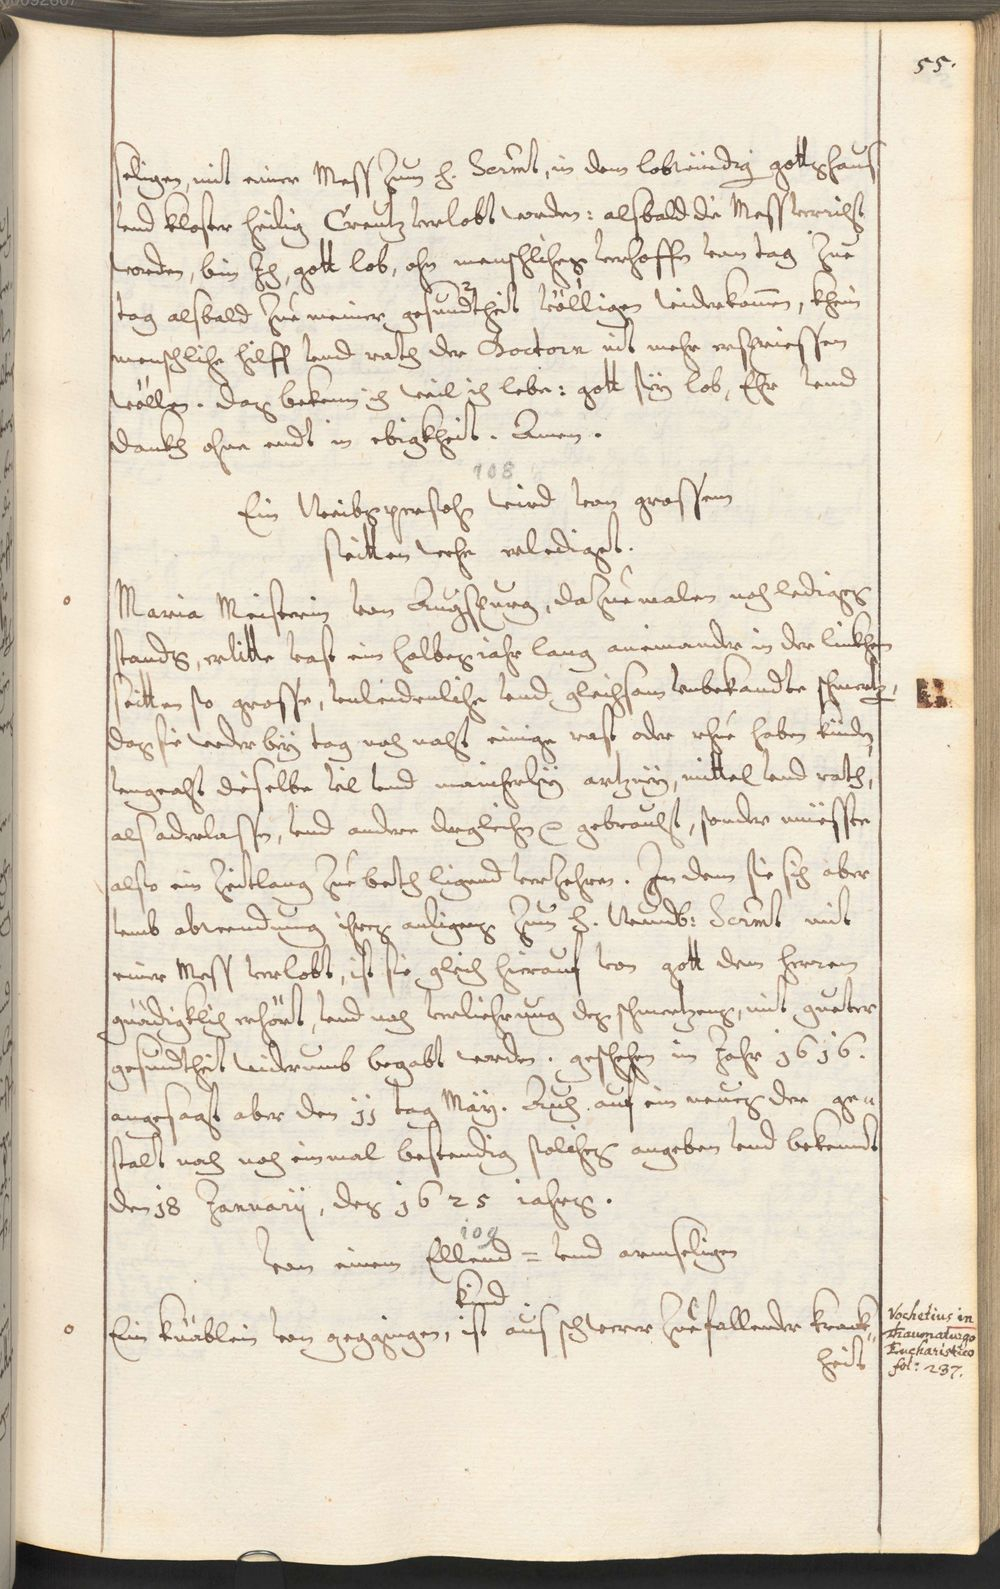 55.
seligen, mit einer Mess zum h. Scrmt, in dem lobwürdig gottshaus
vnd kloster heilig Creutz verlobt worden: alsbald die Mess verricht
worden, bin Ich, gott lob, ohn menschliches verhoffen von tag zue
tag alsbald zue meiner gesundtheit völligen widerkommen, khein
menschliche hilff vnd rath der Doctorn nit mehr erspriessen
wöllen. das bekenn ich weil ich lebe: gott sey lob, Ehr vnd
danckh ohne endt in ewigkheit. Amen.
108
Ein Weibspersohn wird von grossem
seitten wehe erlediget.
Maria Meisterin von Augspurg, dazuemalen noch lediges
stands, erlitte vast ein halbes jahr lang aneinander in der linckhen
seitten so grosse, vnleidenliche vnd gleichsam vnbekandte schmertz,
das sie weder bey tag noch nacht einige rast oder rhue haben künden,
vngeacht dieselbe vil vnd mancherley artzney, mittel vnd rath,
als aderlassen, vnd andere dergleichen gebraucht, sonder müesste
also ein zeitlang zue beth ligend verzehren. In dem sie sich aber
vmb abwendung ihres anligens zum h. Wundb: Scrmt mit
einer Mess verlobt, ist sie gleich hierauf von gott dem herren
gnädigklich erhört, vnd nach verliehrung des schmertzens, mit gueter
gesundtheit widerumb begabt worden. geschehen im Jahr 1616.
angesagt aber den 11 tag May. Auch auf ein neues der ge„
stalt nach noch einmal bestendig solches angeben vnd bekennt
den 18 January, des 1625 jahrs.
109
von einem Ellend= vnd armseligen
kind
Ein knäblein von geggingen, ist auf schwerer zuefallender kranck„
heit
Vochetius in
Thaumaturgo
Eucharistico
fol: 237.